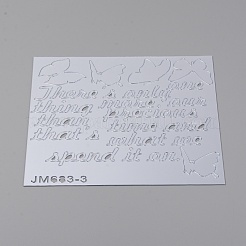 There's only one
thing more
than
time and
that's what we
spend it on.
JM683-3